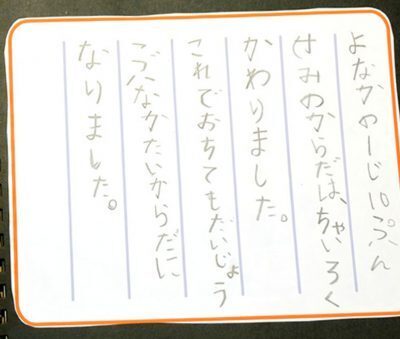 よなかの一じ10ぷん
せみのからだは、ちゃいろく
かわりました。
これでおちてもだいじょう
ぶなかたいからだに
なりました。